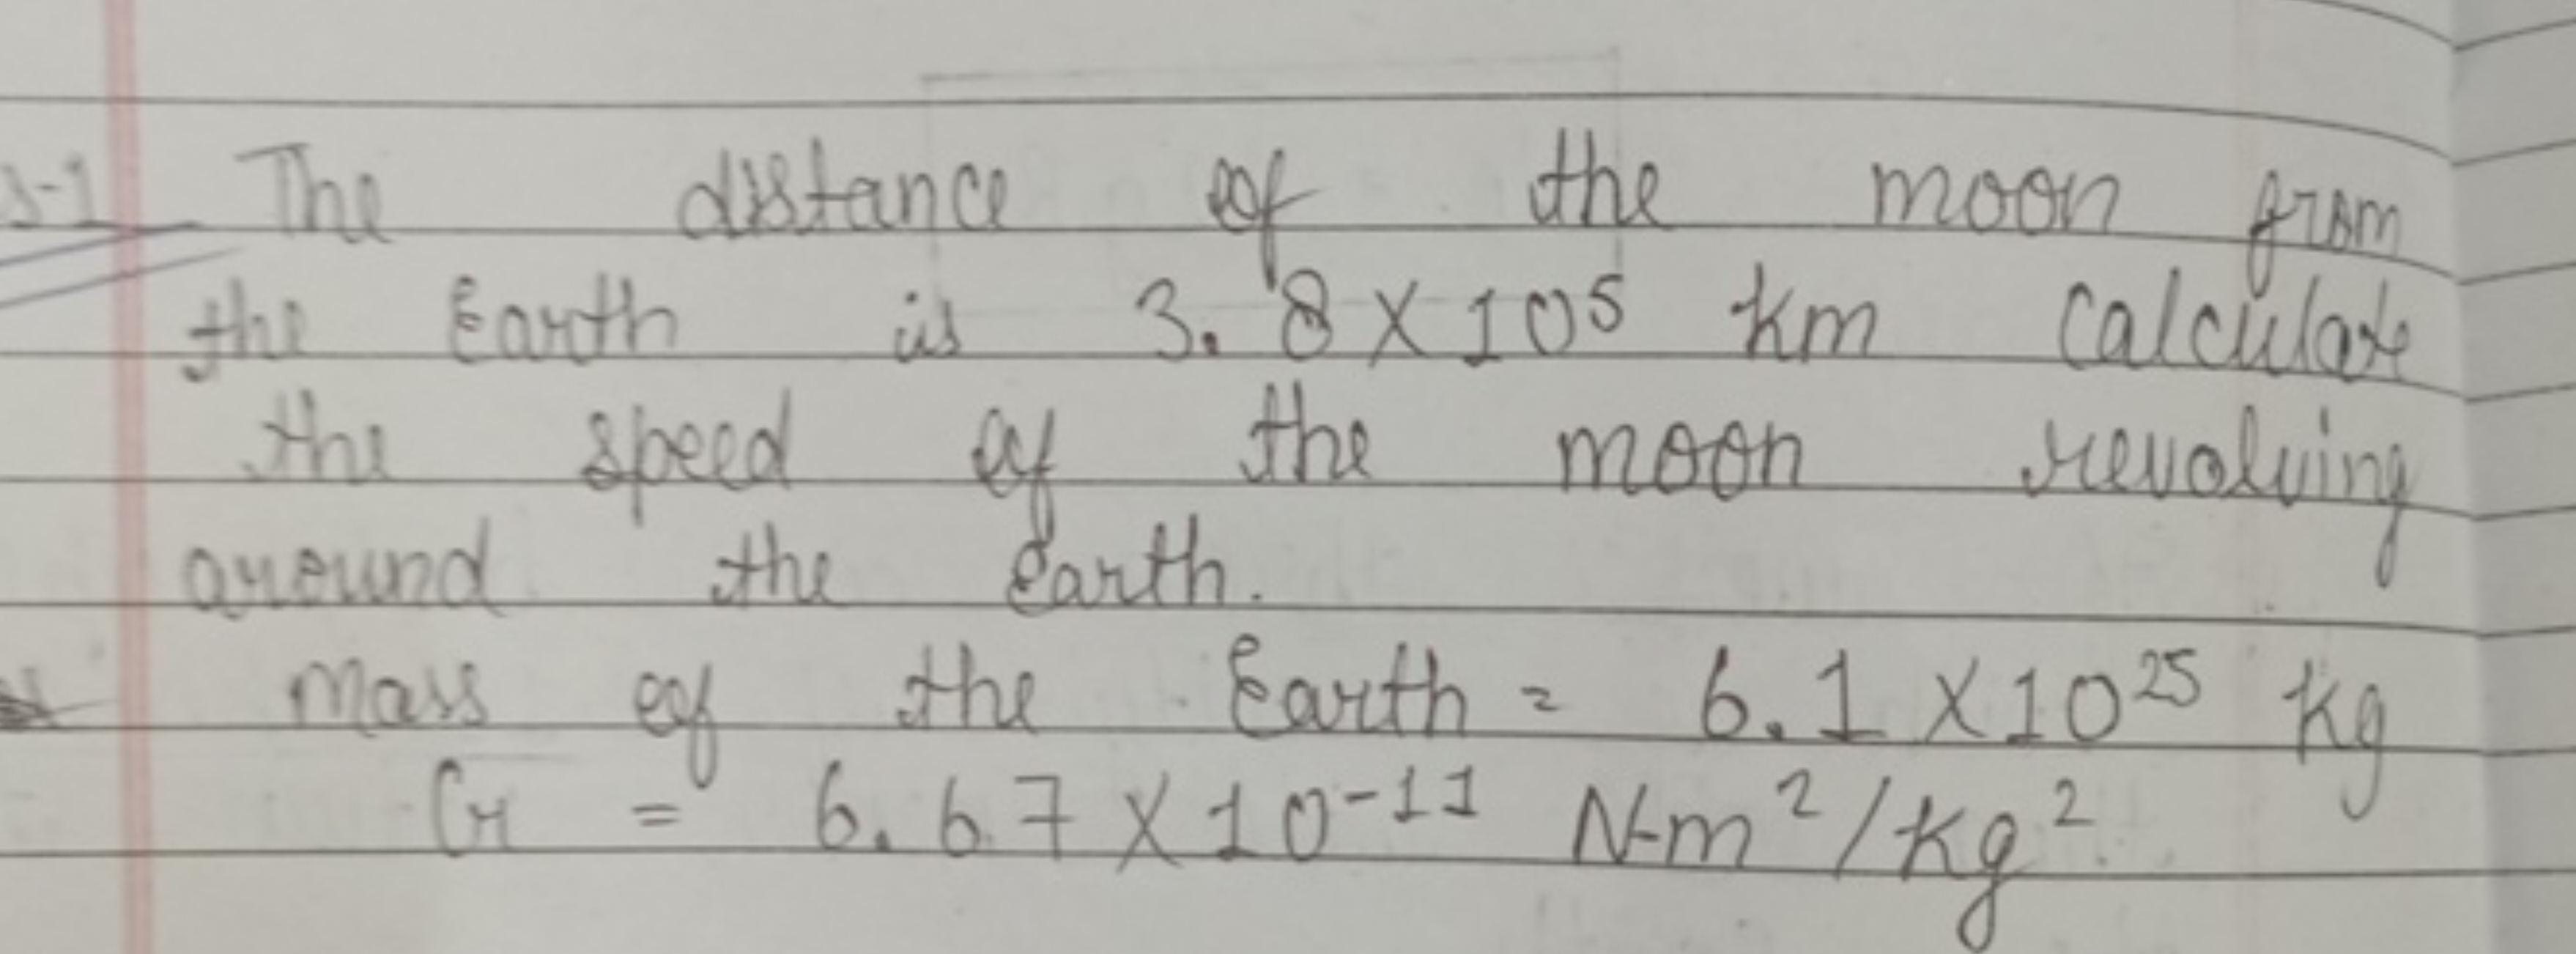 The distance of the moon from
the Earth is 3.8 X 10⁵ km Calculate
the speed of the moon revolving
around the Earth.
Mass of the Earth = 6.1 X 10²⁵ kg
G = 6.67 X 10⁻¹¹ N-m²/kg²